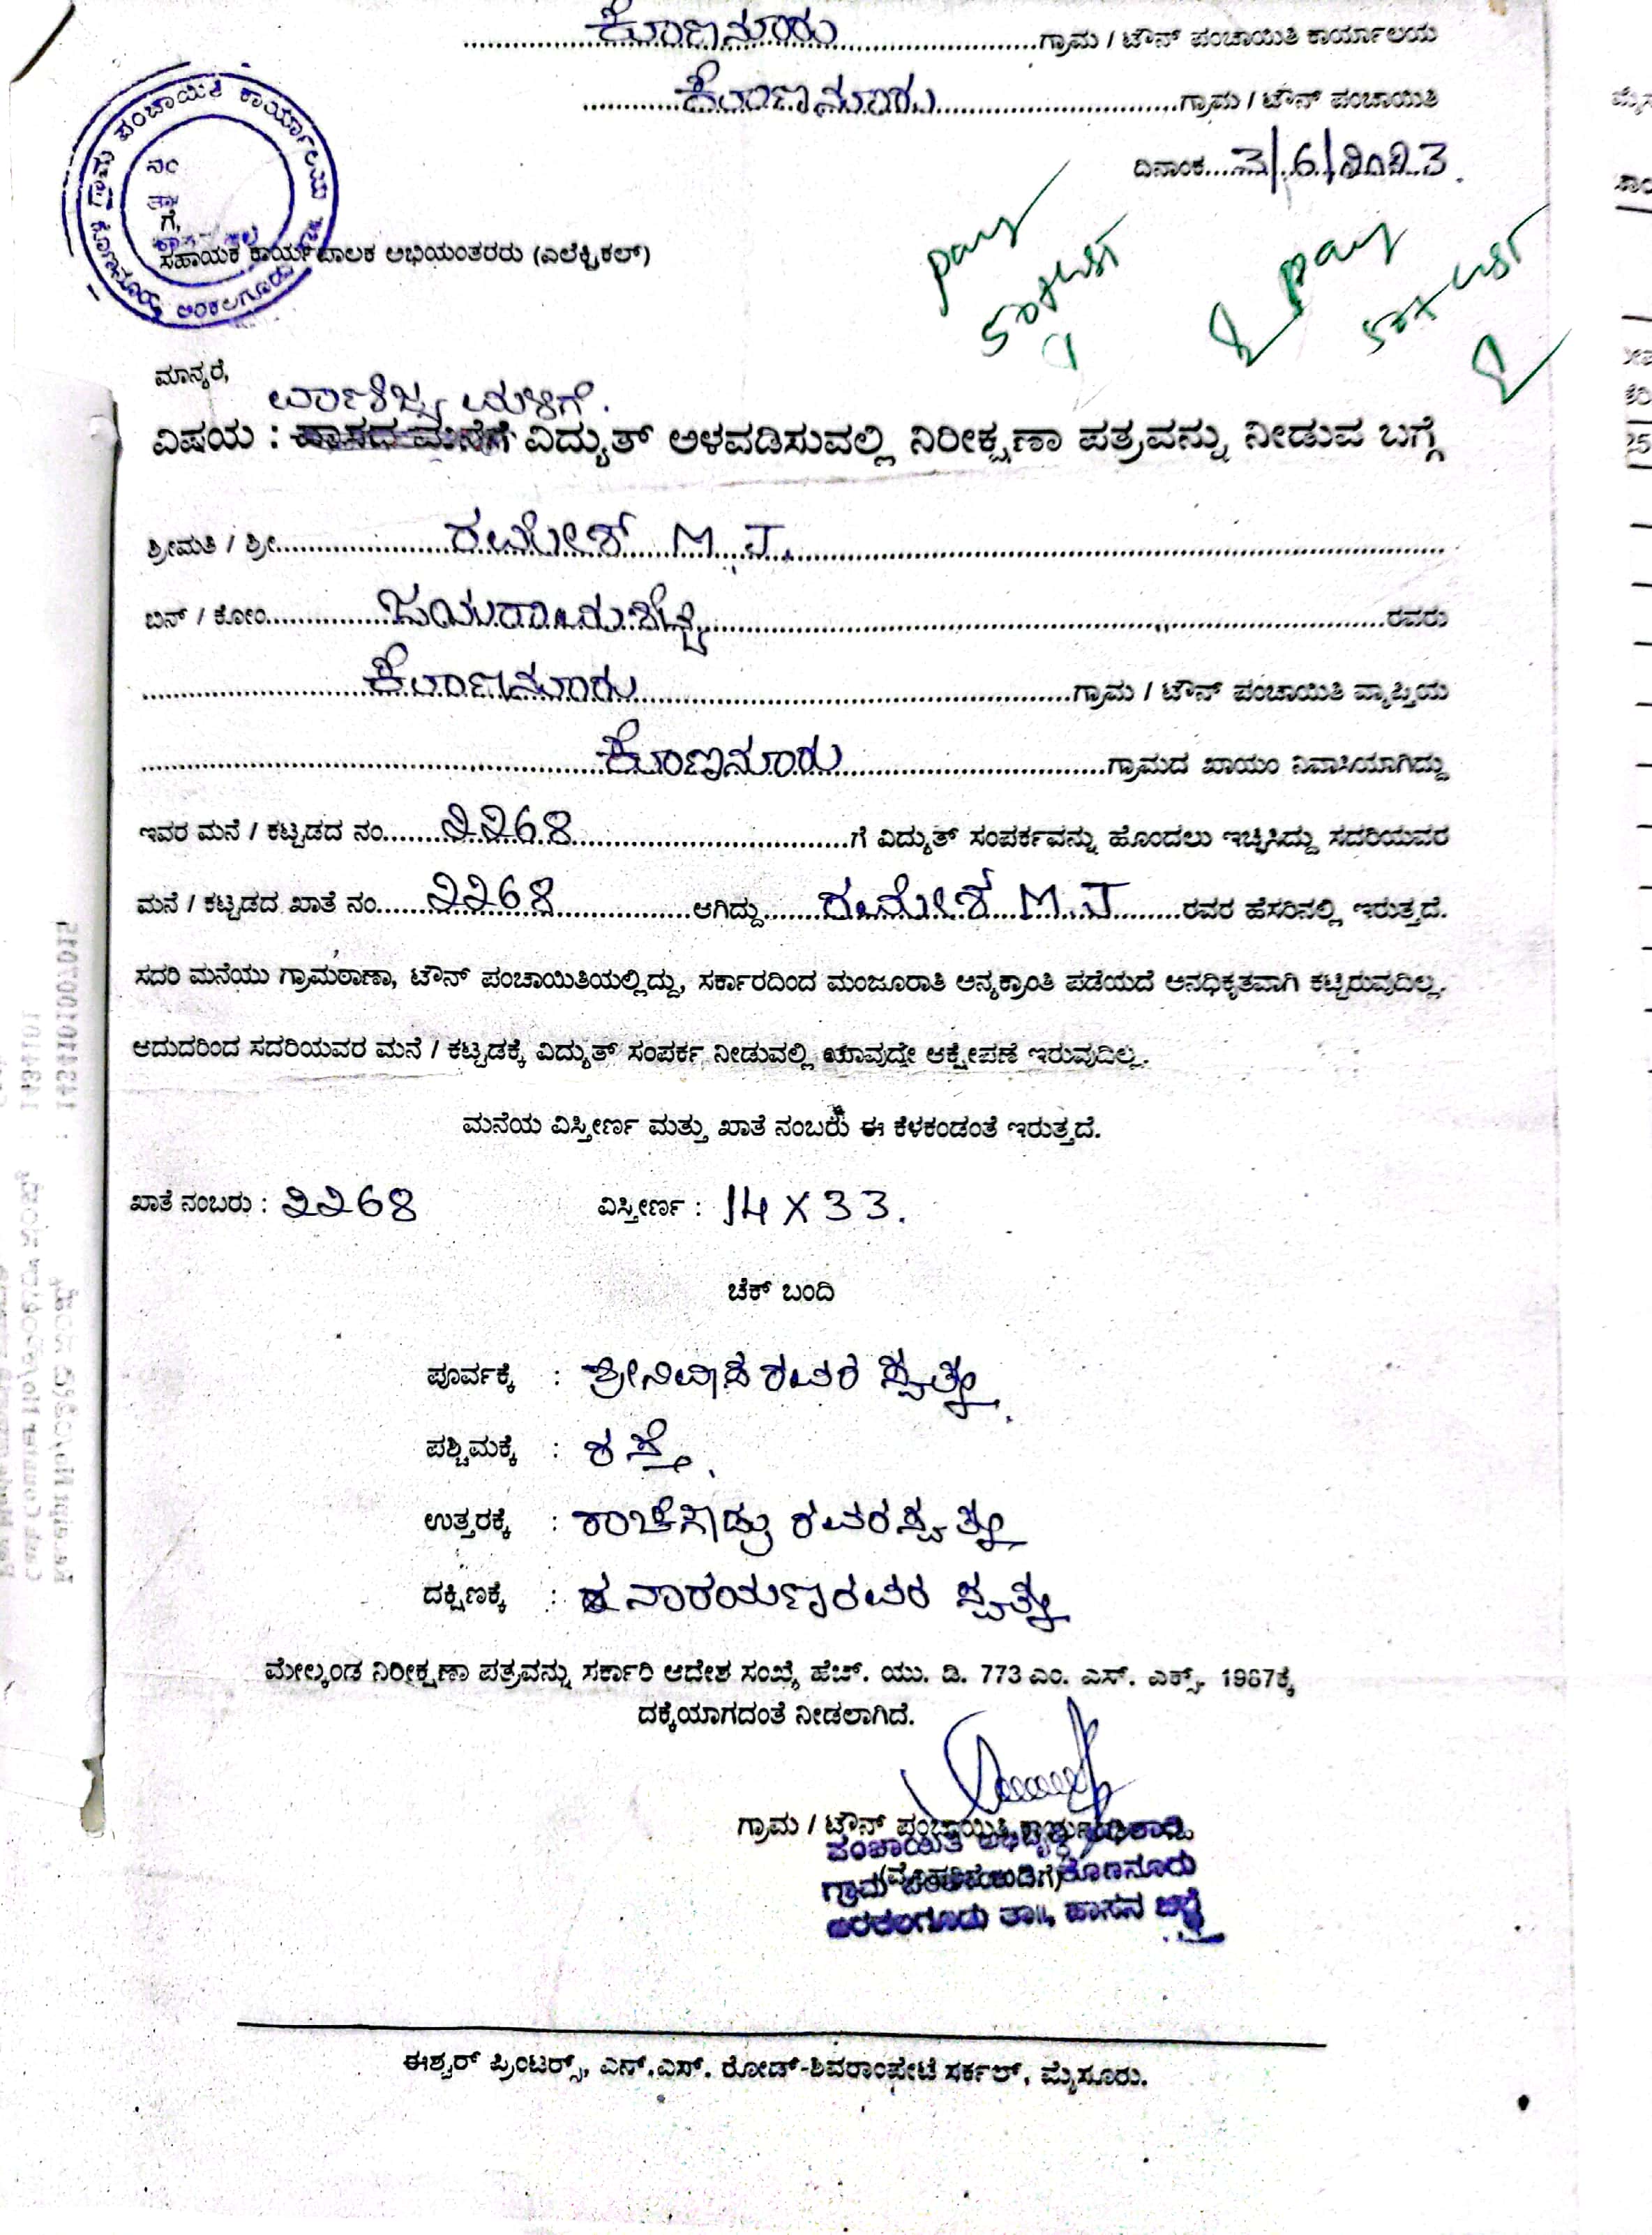 ಕೊಣನೂರು ಗ್ರಾಮ / ಟೌನ್ ಪಂಚಾಯಿತಿ ಕಾರ್ಯಾಲಯ
ಕೊಣನೂರು ಗ್ರಾಮ / ಟೌನ್ ಪಂಚಾಯಿತಿ
ದಿನಾಂಕ 3/6/2023.
ಗ್ರಾಮ ಪಂಚಾಯಿತಿ ಕಾರ್ಯಾಲಯ
ನಂ
ಗೆ,
ಸಹಾಯಕ ಕಾರ್ಯಪಾಲಕ ಅಭಿಯಂತರರು (ಎಲೆಕ್ಟ್ರಿಕಲ್)
pay pay
ಮಾನ್ಯರೆ,
ವಾಣಿಜ್ಯ ಮಳಿಗೆ.
ವಿಷಯ : ವಾಸದ ಮನೆಗೆ ವಿದ್ಯುತ್ ಅಳವಡಿಸುವಲ್ಲಿ ನಿರೀಕ್ಷಣಾ ಪತ್ರವನ್ನು ನೀಡುವ ಬಗ್ಗೆ
ಶ್ರೀಮತಿ / ಶ್ರೀ ರಮೇಶ್ M. J.
ಬಿನ್ / ಕೋಂ ಜಯರಾಮಶೆಟ್ಟಿ ರವರು
ಕೊಣನೂರು ಗ್ರಾಮ / ಟೌನ್ ಪಂಚಾಯಿತಿ ವ್ಯಾಪ್ತಿಯ
ಕೊಣನೂರು ಗ್ರಾಮದ ಖಾಯಂ ನಿವಾಸಿಯಾಗಿದ್ದು
ಇವರ ಮನೆ / ಕಟ್ಟಡದ ನಂ 2268 ಗೆ ವಿದ್ಯುತ್ ಸಂಪರ್ಕವನ್ನು ಹೊಂದಲು ಇಚ್ಛಿಸಿದ್ದು ಸದರಿಯವರ
ಮನೆ / ಕಟ್ಟಡದ ಖಾತೆ ನಂ 2268 ಆಗಿದ್ದು ರಮೇಶ M. J ರವರ ಹೆಸರಿನಲ್ಲಿ ಇರುತ್ತದೆ.
ಸದರಿ ಮನೆಯು ಗ್ರಾಮಠಾಣಾ, ಟೌನ್ ಪಂಚಾಯಿತಿಯಲ್ಲಿದ್ದು, ಸರ್ಕಾರದಿಂದ ಮಂಜೂರಾತಿ ಅನ್ಯಕ್ರಾಂತಿ ಪಡೆಯದೆ ಅನಧಿಕೃತವಾಗಿ ಕಟ್ಟಿರುವುದಿಲ್ಲ.
ಆದುದರಿಂದ ಸದರಿಯವರ ಮನೆ / ಕಟ್ಟಡಕ್ಕೆ ವಿದ್ಯುತ್ ಸಂಪರ್ಕ ನೀಡುವಲ್ಲಿ ಯಾವುದೇ ಆಕ್ಷೇಪಣೆ ಇರುವುದಿಲ್ಲ.
ಮನೆಯ ವಿಸ್ತೀರ್ಣ ಮತ್ತು ಖಾತೆ ನಂಬರು ಈ ಕೆಳಕಂಡಂತೆ ಇರುತ್ತದೆ.
ಖಾತೆ ನಂಬರು : 2268 ವಿಸ್ತೀರ್ಣ : 14 X 33.
ಚೆಕ್ ಬಂದಿ
ಪೂರ್ವಕ್ಕೆ : ಶ್ರೀನಿವಾಸ ರವರ ಸ್ವತ್ತು
ಪಶ್ಚಿಮಕ್ಕೆ : ರಸ್ತೆ.
ಉತ್ತರಕ್ಕೆ : ರವರ ಸ್ವತ್ತು
ದಕ್ಷಿಣಕ್ಕೆ : ನಾರಾಯಣ ರವರ ಸ್ವತ್ತು
ಮೇಲ್ಕಂಡ ನಿರೀಕ್ಷಣಾ ಪತ್ರವನ್ನು ಸರ್ಕಾರಿ ಆದೇಶ ಸಂಖ್ಯೆ ಹೆಚ್. ಯು. ಡಿ. 773 ಎಂ. ಎಸ್. ಎಕ್ಸ್. 1967ಕ್ಕೆ
ದಕ್ಕೆಯಾಗದಂತೆ ನೀಡಲಾಗಿದೆ.
ಗ್ರಾಮ / ಟೌನ್ ಪಂಚಾಯಿತಿ
ಪಂಚಾಯಿತಿ ಅಭಿವೃದ್ಧಿ ಅಧಿಕಾರಿ
ಗ್ರಾಮ ಕೊಣನೂರು
ಅರಕಲಗೂಡು ತಾ||, ಹಾಸನ ಜಿಲ್ಲೆ
ಈಶ್ವರ್ ಪ್ರಿಂಟರ್ಸ್, ಎನ್.ಎಸ್. ರೋಡ್-ಶಿವರಾಂಪೇಟೆ ಸರ್ಕಲ್, ಮೈಸೂರು.